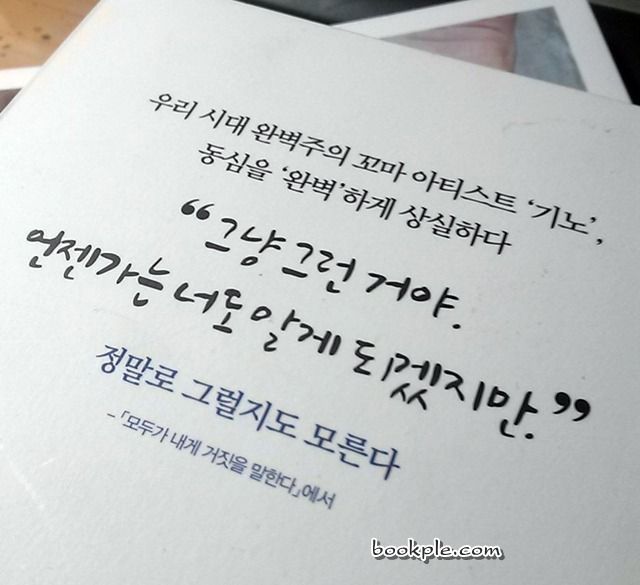 우리 시대 완벽주의 꼬마 아티스트 ‘기노’,
동심을 ‘완벽’하게 상실하다
“그냥 그런 거야.
언젠가는 너도 알게 되겠지만.”
정말로 그럴지도 모른다
–「모두가 내게 거짓을 말한다」에서
bookple.com